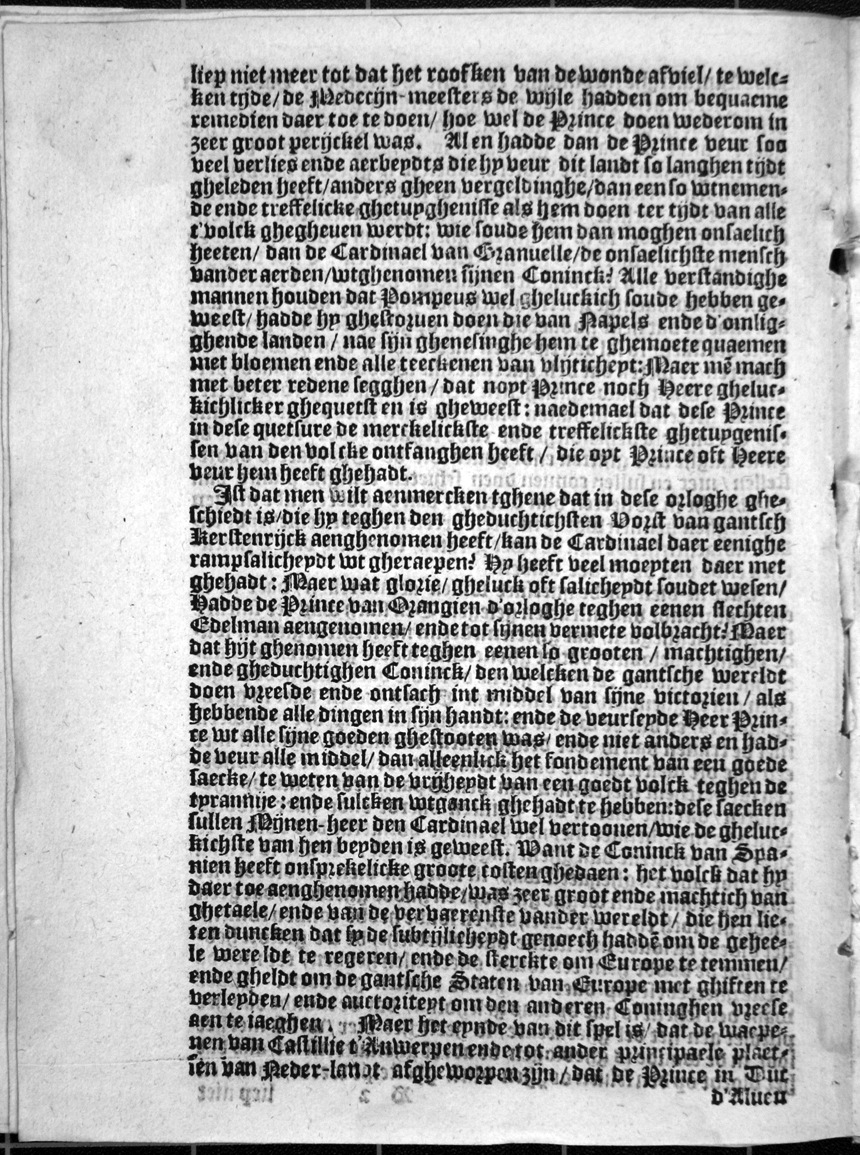 liep niet meer tot dat het roofken van de wonde afviel/ te welc⸗
ken tijde/ de Medecijn-meesters de wijle hadden om bequaeme
remedien daer toe te doen/ hoe wel de Prince doen wederom in
zeer groot perijckel was. Al en hadde dan de Prince veur soo
veel verlies ende aerbeydts die hy veur dit landt so langhen tijdt
gheleden heeft/ anders gheen vergeldinghe/ dan een so wtnemen⸗
de ende treffelicke ghetuyghenisse als hem doen ter tijdt van alle
t'volck ghegheven werdt: wie soude hem dan moghen onsaelich
heeten/ dan de Cardinael van Granvelle/ de onsaelichste mensch
vander aerden/ wtghenomen sijnen Coninck? Alle verstandighe
mannen houden dat Pompeus wel gheluckich soude hebben ge⸗
weest/ hadde hy ghestorven doen die van Napels ende d'omlig⸗
ghende landen / nae sijn ghenesinghe hem te ghemoete quaemen
met bloemen ende alle teeckenen van vlijticheyt: Maer mē mach
met beter redene segghen / dat noyt Prince noch Heere gheluc⸗
kichlicker ghequetst en is gheweest: naedemael dat dese Prince
in dese quetsure de merckelickste ende treffelickste ghetuygenis⸗
sen van den volcke ontfanghen heeft / die oyt Prince oft Heere
veur hem heeft ghehadt.
Ist dat men wilt aenmercken tghene dat in dese orloghe ghe⸗
schiedt is/ die hy teghen den gheduchtichsten Vorst van gantsch
Kerstenrijck aenghenomen heeft/ kan de Cardinael daer eenighe
rampsalicheydt wt gheraepen? Hy heeft veel moeyten daer met
ghehadt: Maer wat glorie/ gheluck oft salicheydt soudet wesen/
Hadde de Prince van Orangien d'orloghe teghen eenen slechten
Edelman aengenomen/ ende tot sijnen vermete volbracht? Maer
dat hijt ghenomen heeft teghen eenen so grooten / machtighen/
ende gheduchtighen Coninck/ den welcken de gantsche wereldt
doen vreesde ende ontsach int middel van sijne victorien / als
hebbende alle dingen in sijn handt: ende de veurseyde Heer Prin⸗
ce wt alle sijne goeden ghestooten was/ ende niet anders en had⸗
de veur alle middel/ dan alleenlick het fondement van een goede
saecke/ te weten van de vrijheydt van een goedt volck teghen de
tyrannije: ende sulcken wtganck ghehadt te hebben: dese saecken
sullen Mijnen-heer den Cardinael wel vertoonen/ wie de gheluc⸗
kichste van hen beyden is geweest. Want de Coninck van Spa⸗
nien heeft onsprekelicke groote costen ghedaen: het volck dat hy
daer toe aenghenomen hadde/ was zeer groot ende machtich van
ghetaele/ ende van de vervaerenste vander wereldt / die hen lie⸗
ten duncken dat sy de subtijlicheydt genoech haddē om de gehee⸗
le wereldt te regeren/ ende de sterckte om Europe te temmen/
ende gheldt om de gantsche Staten van Europe met ghiften te
verleyden/ ende auctoriteyt om den anderen Coninghen vreese
aen te iaeghen. Maer het eynde van dit spel is/ dat de waepe⸗
nen van Castillie t'Antwerpen ende tot ander principaele plaet⸗
sen van Neder-landt afgheworpen zijn / dat de Prince in Duc
d'Alven